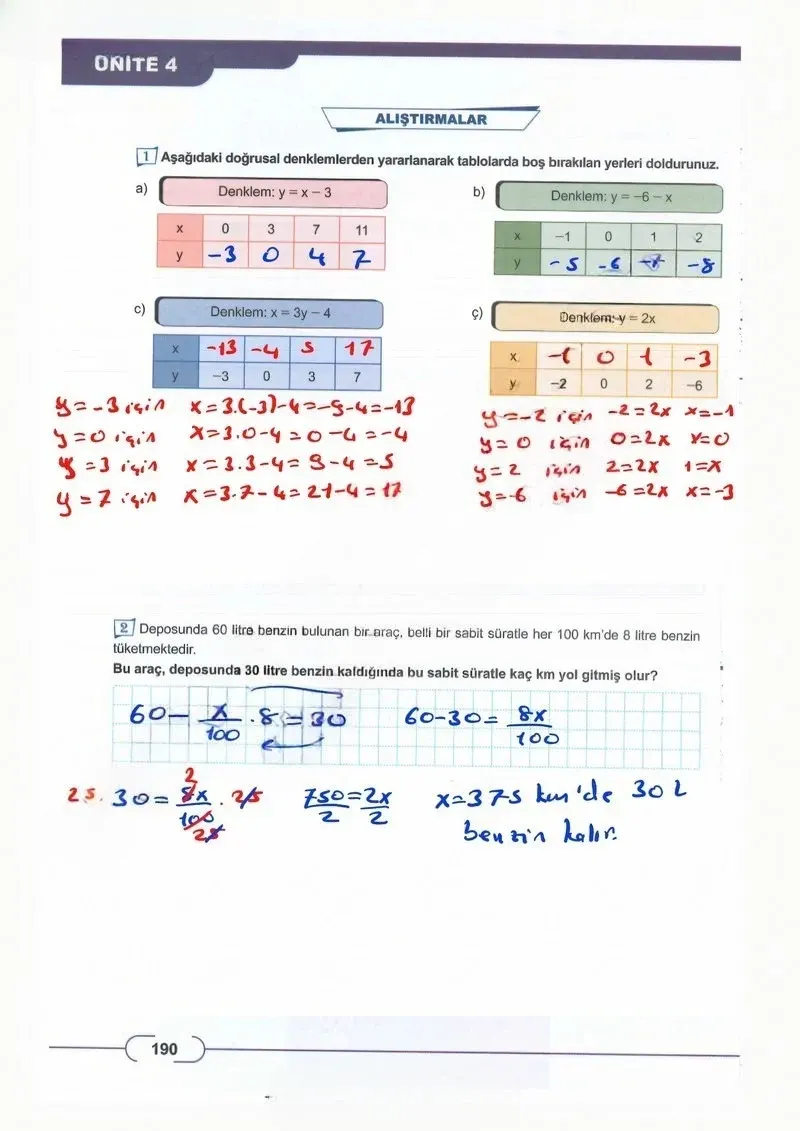 ÜNİTE 4
ALIŞTIRMALAR
1 Aşağıdaki doğrusal denklemlerden yararlanarak tablolarda boş bırakılan yerleri doldurunuz.
a) Denklem: y = x – 3
x 0 3 7 11
y -3 0 4 7
b) Denklem: y = –6 – x
x –1 0 1 2
y -5 -6 -7 -8
c) Denklem: x = 3y – 4
x -13 -4 5 17
y –3 0 3 7
ç) Denklem: y = 2x
x -1 0 1 -3
y –2 0 2 –6
y=-3 için x=3.(-3)-4=-9-4=-13
y=0 için x=3.0-4=0-4=-4
y=3 için x=3.3-4=9-4=5
y=7 için x=3.7-4=21-4=17
y=-2 için -2=2x x=-1
y=0 için 0=2x x=0
y=2 için 2=2x 1=x
y=-6 için -6=2x x=-3
2 Deposunda 60 litre benzin bulunan bir araç, belli bir sabit süratle her 100 km'de 8 litre benzin
tüketmektedir.
Bu araç, deposunda 30 litre benzin kaldığında bu sabit süratle kaç km yol gitmiş olur?
60- x/100 .8=30 60-30= 8x/100
25. 30= 8x/100 . 25 2 25 750/2=2x/2 x=375 km'de 30 L
benzin kalır.
190